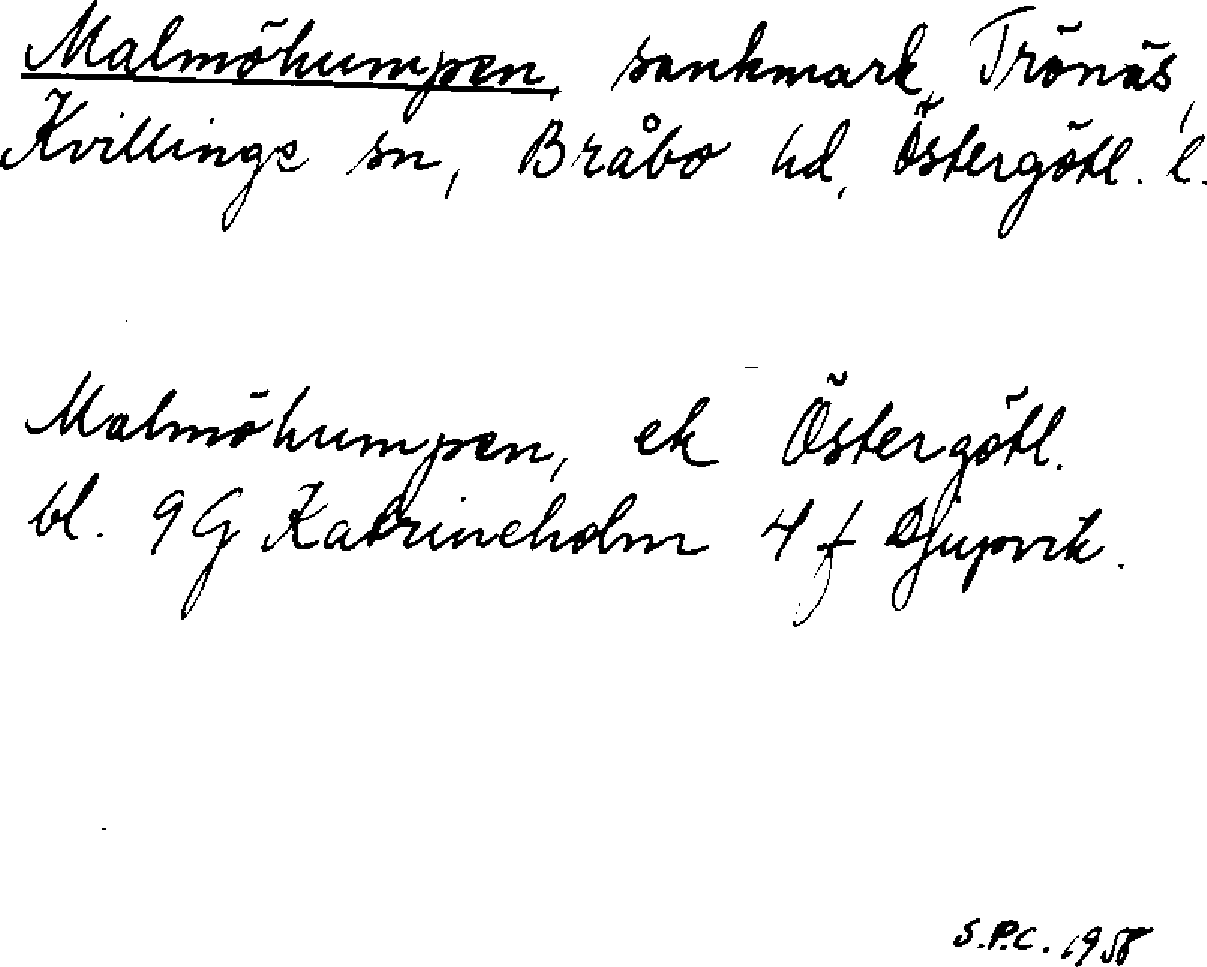 Malmöhumpen, sankmark, Trönäs,
Kvillinge sn, Bråbo hd, Östergötl. l.
Malmöhumpen, ek Östergötl.
bl. 9 G Katrineholm 4 f Djupvik.
S.P.C. 1958